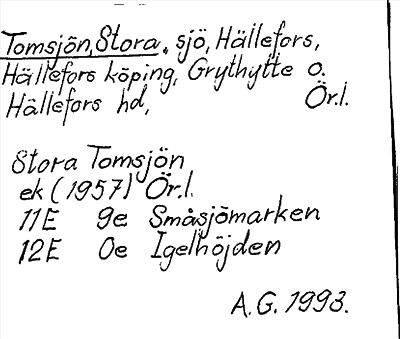 Tomsjön, Stora, sjö, Hällefors,
Hällefors köping, Grythytte o.
Hällefors hd, Ör.l.
Stora Tomsjön
ek (1957) Ör.l.
11E 9e Småsjömarken
12E 0e Igelhöjden
A.G. 1993.